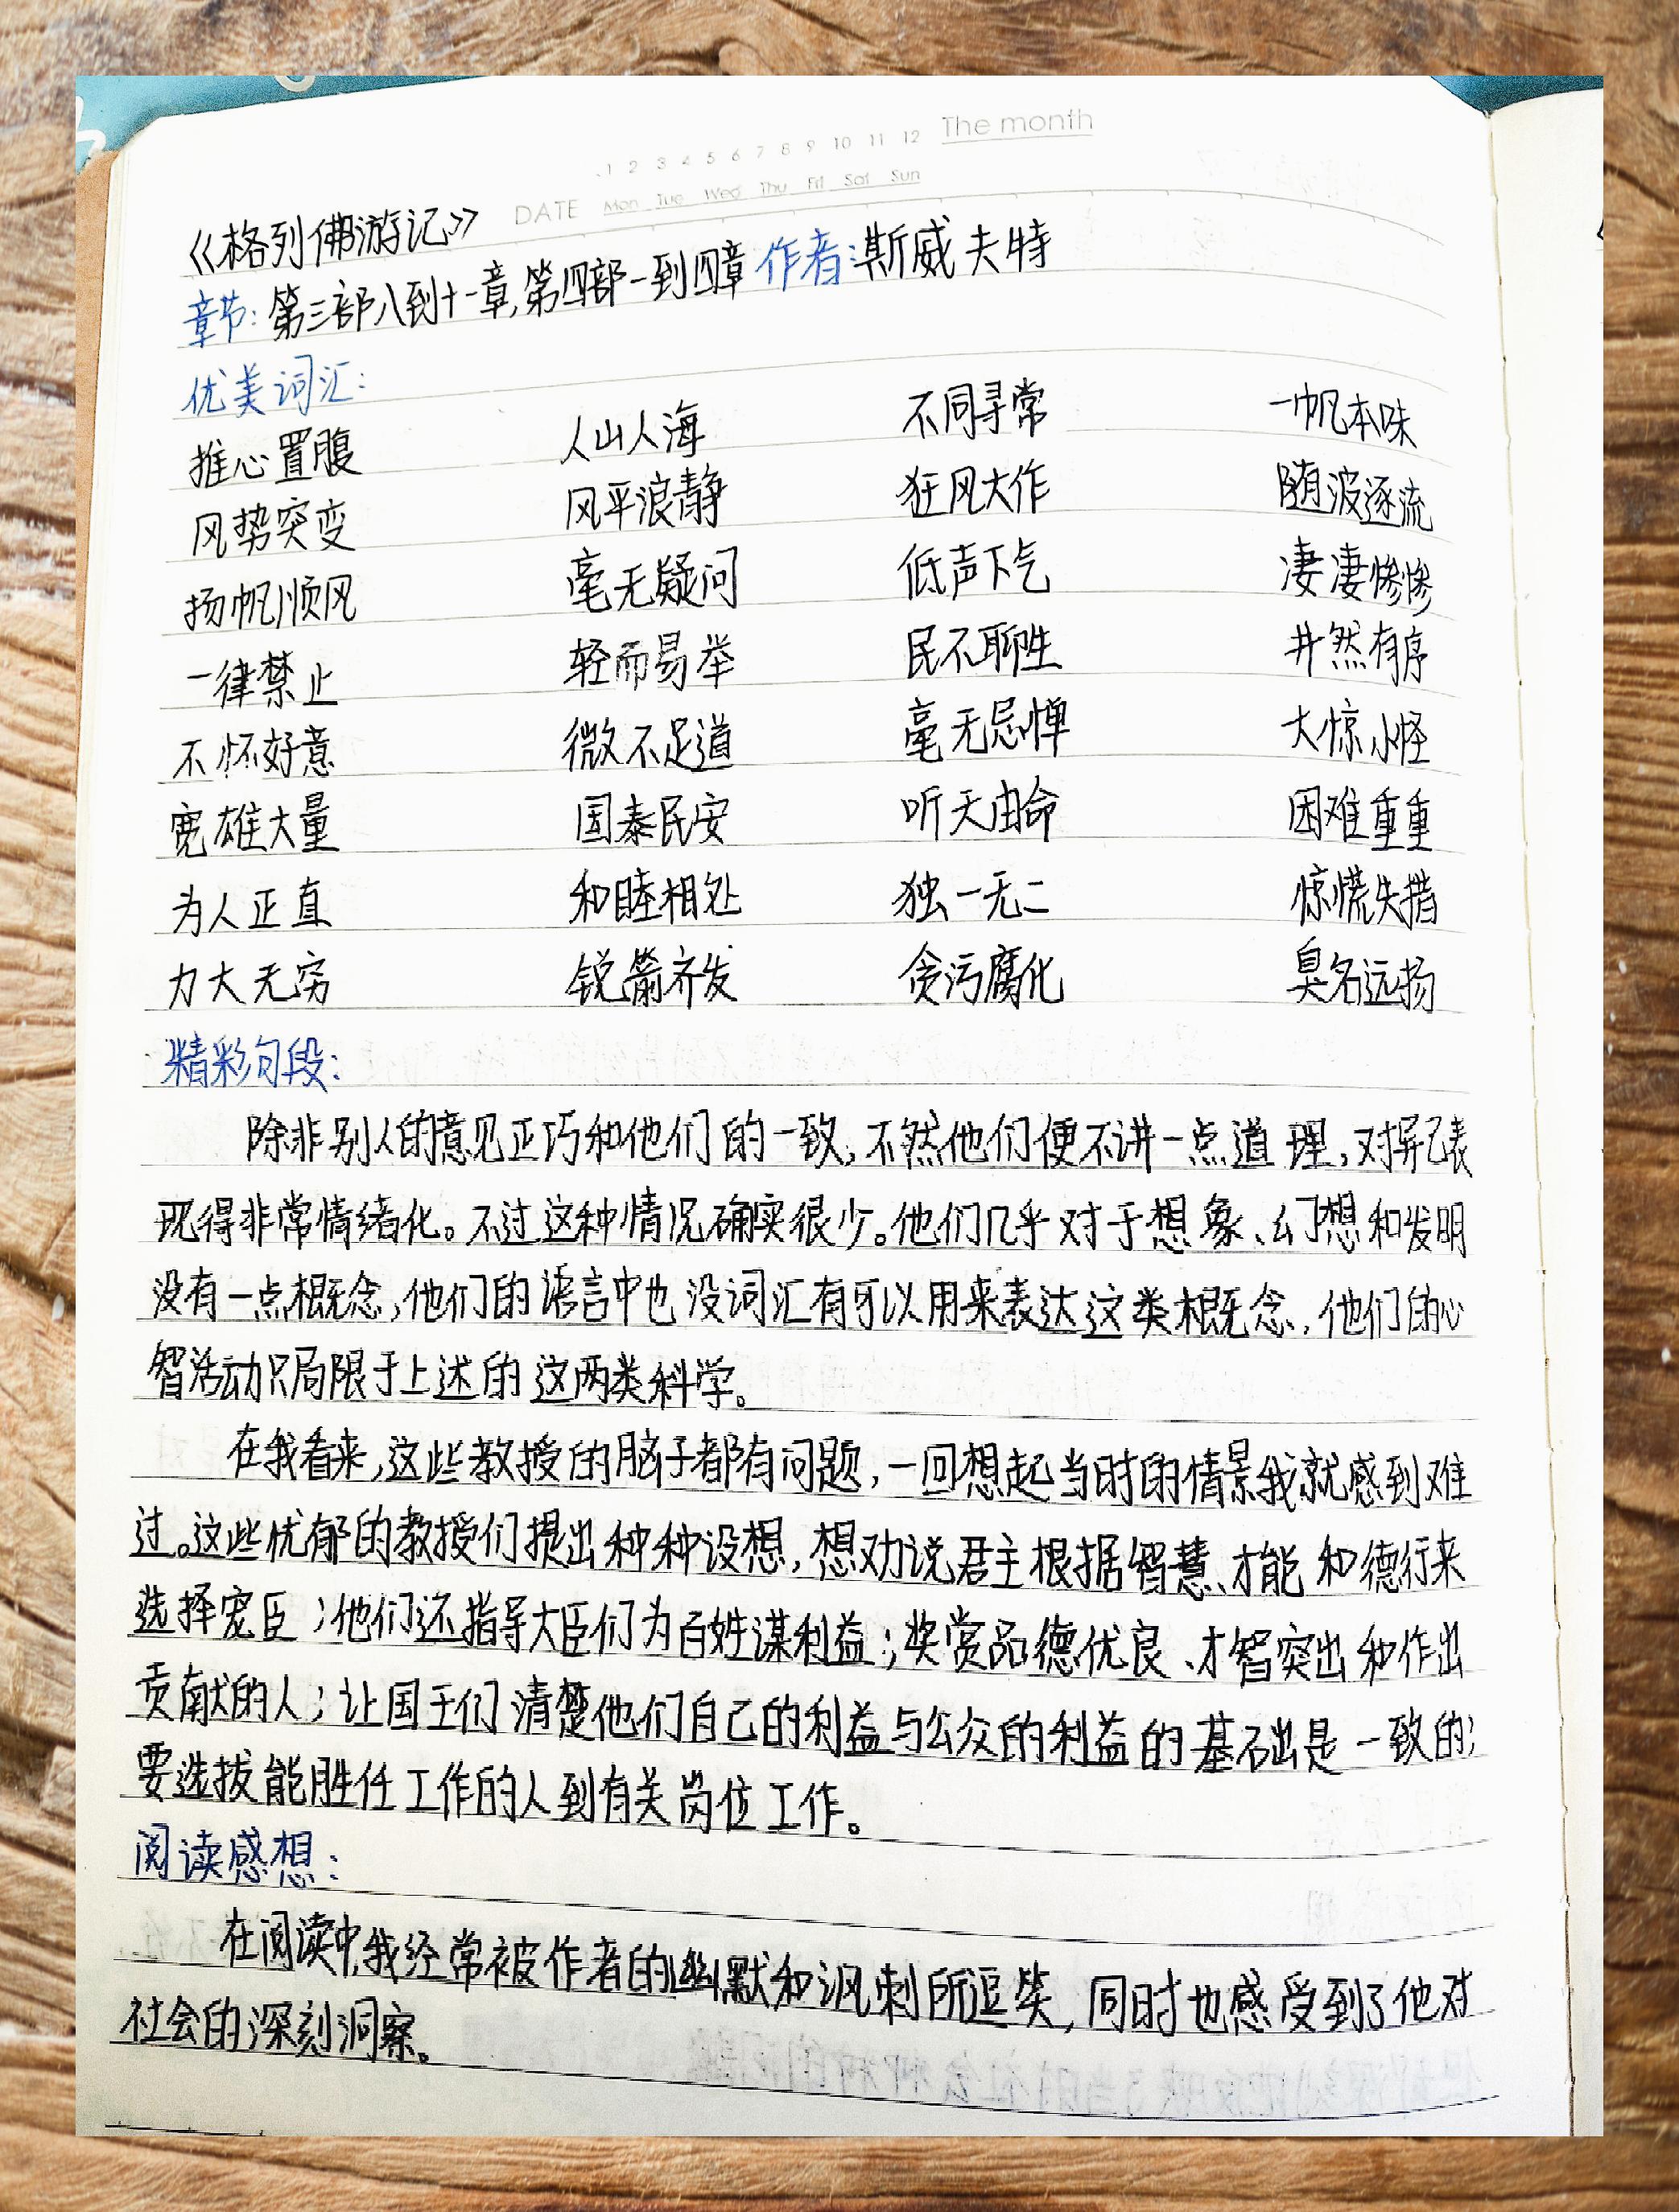 The month
1 2 3 4 5 6 7 8 9 10 11 12
DATE Mon Tue Wed Thu Fri Sat Sun
《格列佛游记》
章节:第三部八到十一章,第四部一到四章 作者:斯威夫特
优美词汇:
推心置腹 人山人海 不同寻常 一帆本味
风势突变 风平浪静 狂风大作 随波逐流
扬帆顺风 毫无疑问 低声下气 凄凄惨惨
一律禁止 轻而易举 民不聊生 井然有序
不怀好意 微不足道 毫无忌惮 大惊小怪
宽雄大量 国泰民安 听天由命 困难重重
为人正直 和睦相处 独一无二 惊慌失措
力大无穷 锐箭齐发 贪污腐化 臭名远扬
精彩句段:
除非别人的意见正巧和他们的一致,不然他们便不讲一点道理,对异己表
现得非常情绪化。不过这种情况确实很少。他们几乎对于想象、幻想和发明
没有一点概念,他们的语言中也没词汇有可以用来表达这类概念,他们的心
智活动只局限于上述的这两类科学。
在我看来,这些教授的脑子都有问题,一回想起当时的情景我就感到难
过。这些忧郁的教授们提出种种设想,想劝说君主根据智慧、才能和德行来
选择宠臣;他们还指导大臣们为百姓谋利益;奖赏品德优良、才智突出和作出
贡献的人;让国王们清楚他们自己的利益与公众的利益的基础是一致的;
要选拔能胜任工作的人到有关岗位工作。
阅读感想:
在阅读中,我经常被作者的幽默和讽刺所逗笑,同时也感受到了他对
社会的深刻洞察。